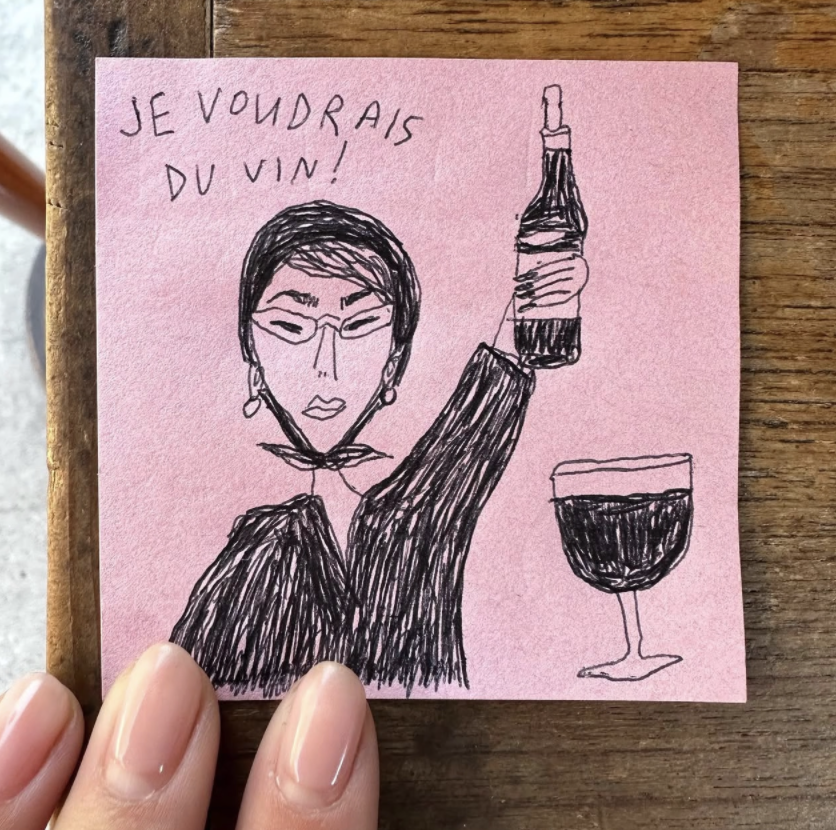 JE VOUDRAIS
DU VIN!